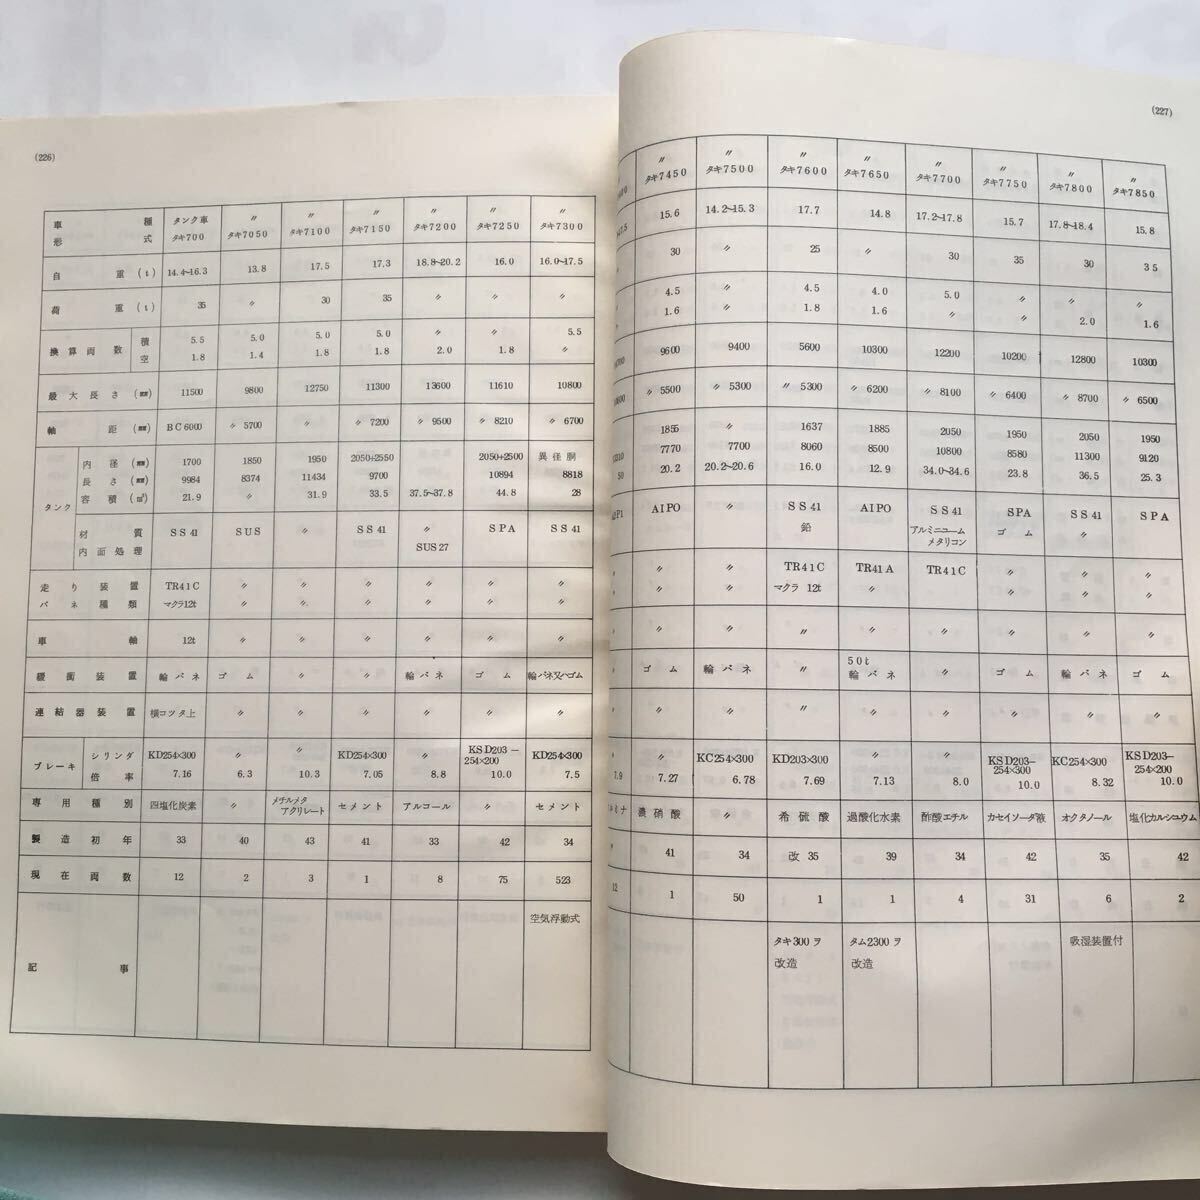 (226)
車種 タンク車 〃 〃 〃 〃 〃 〃
形式 タキ700 タキ7050 タキ7100 タキ7150 タキ7200 タキ7250 タキ7300
自重(t) 14.4~16.3 13.8 17.5 17.3 18.8~20.2 16.0 16.0~17.5
荷重(t) 35 〃 30 35 〃 〃 〃
換算両数 積 5.5 5.0 5.0 5.0 〃 〃 5.5
空 1.8 1.4 1.8 1.8 2.0 1.8 〃
最大長さ(㎜) 11500 9800 12750 11300 13600 11610 10800
軸距(㎜) BC6000 〃5700 〃 〃7200 〃9500 〃8210 〃6700
タンク 内径(㎜) 1700 1850 1950 2050+2550 2050+2500 異径胴
長さ(㎜) 9984 8374 11434 9700 10894 8818
容積(㎥) 21.9 〃 31.9 33.5 37.5~37.8 44.8 28
材質 SS41 SUS 〃 SS41 〃 SPA SS41
内面処理 SUS27
走り装置 TR41C 〃 〃 〃 〃 〃 〃
バネ種類 マクラ12t 〃 〃 〃 〃 〃 〃
車軸 12t 〃 〃 〃 〃 〃 〃
緩衝装置 輪バネ ゴム 〃 〃 輪バネ ゴム 輪バネ又ハゴム
連結器装置 横コツタ上 〃 〃 〃 〃 〃 〃
ブレーキ シリンダ KD254×300 〃 〃 KD254×300 〃 KSD203－254×200 KD254×300
倍率 7.16 6.3 10.3 7.05 8.8 10.0 7.5
専用種別 四塩化炭素 〃 メチルメタアクリレート セメント アルコール 〃 セメント
製造初年 33 40 43 41 33 42 34
現在両数 12 2 3 1 8 75 523
記事 空気浮動式
(227)
〃 〃 〃 〃 〃 〃 〃 〃
タキ7450 タキ7500 タキ7600 タキ7650 タキ7700 タキ7750 タキ7800 タキ7850
15.6 14.2~15.3 17.7 14.8 17.2~17.8 15.7 17.8~18.4 15.8
30 〃 25 〃 30 35 30 35
4.5 〃 4.5 4.0 5.0 〃 〃 〃
1.6 〃 1.8 1.6 〃 〃 2.0 1.6
9600 9400 5600 10300 12200 10200 12800 10300
〃5500 〃5300 〃5300 〃6200 〃8100 〃6400 〃8700 〃6500
1855 1637 1885 2050 1950 2050 1950
7770 7700 8060 8500 10800 8580 11300 9120
50 20.2 20.2~20.6 16.0 12.9 34.0~34.6 23.8 36.5 25.3
AlPO 〃 SS41 AlPO SS41 SPA SS41 SPA
鉛 アルミニユームメタリコン ゴム 〃
〃 〃 〃 TR41C TR41A TR41C 〃 〃 〃
〃 〃 〃 マクラ 12t 〃 〃 〃 〃
〃 〃 〃 〃 〃 〃 〃 〃 〃
〃 ゴム 輪バネ 〃 50t輪バネ 輪バネ ゴム 輪バネ ゴム
〃 〃 〃 〃 〃 〃 〃 〃 〃
〃 〃 KC254×300 KD203×300 〃 〃 KSD203－254×300 KC254×300 KSD203－254×200
7.9 7.27 6.78 7.69 7.13 8.0 10.0 8.32 10.0
ミナ 濃硝酸 〃 希硫酸 過酸化水素 酢酸エチル カセイソーダ液 オクタノール 塩化カルシユウム
41 34 改35 39 34 42 35 42
12 1 50 1 1 4 31 6 2
タキ300ヲ改造 タム2300ヲ改造 吸湿装置付